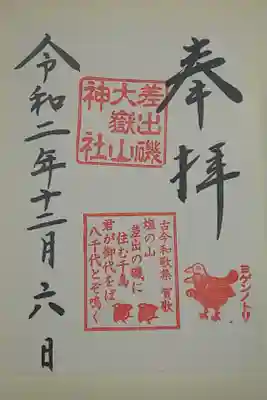 奉拝
差出磯
大嶽山
神社
古今和歌集 賀歌
塩の山
差出の磯に
住む千鳥
君が御代をば
八千代とぞ鳴く
ヨゲンノトリ
令和二年十二月六日